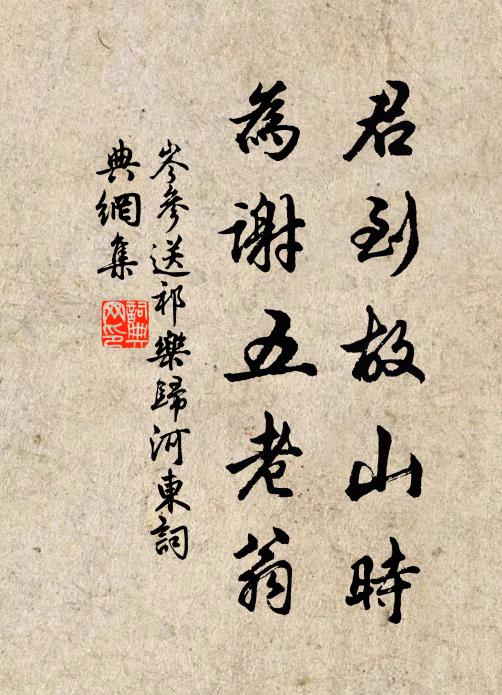 君到故山時
為謝五老翁
岑參送祁樂歸河東詞
典網集
詞典网印